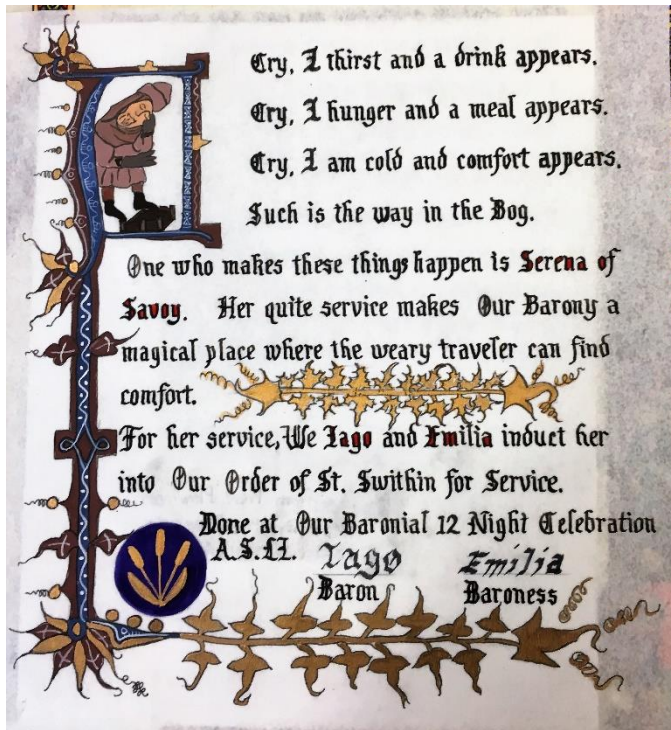 Cry, I thirst and a drink appears.
Cry, I hunger and a meal appears.
Cry, I am cold and comfort appears.
Such is the way in the Bog.
One who makes these things happen is Serena of
Savoy. Her quite service makes Our Barony a
magical place where the weary traveler can find
comfort.
For her service, We Iago and Emilia induct her
into Our Order of St. Swithin for Service.
Done at Our Baronial 12 Night Celebration
A.S.LI. Iago Emilia
Baron Baroness